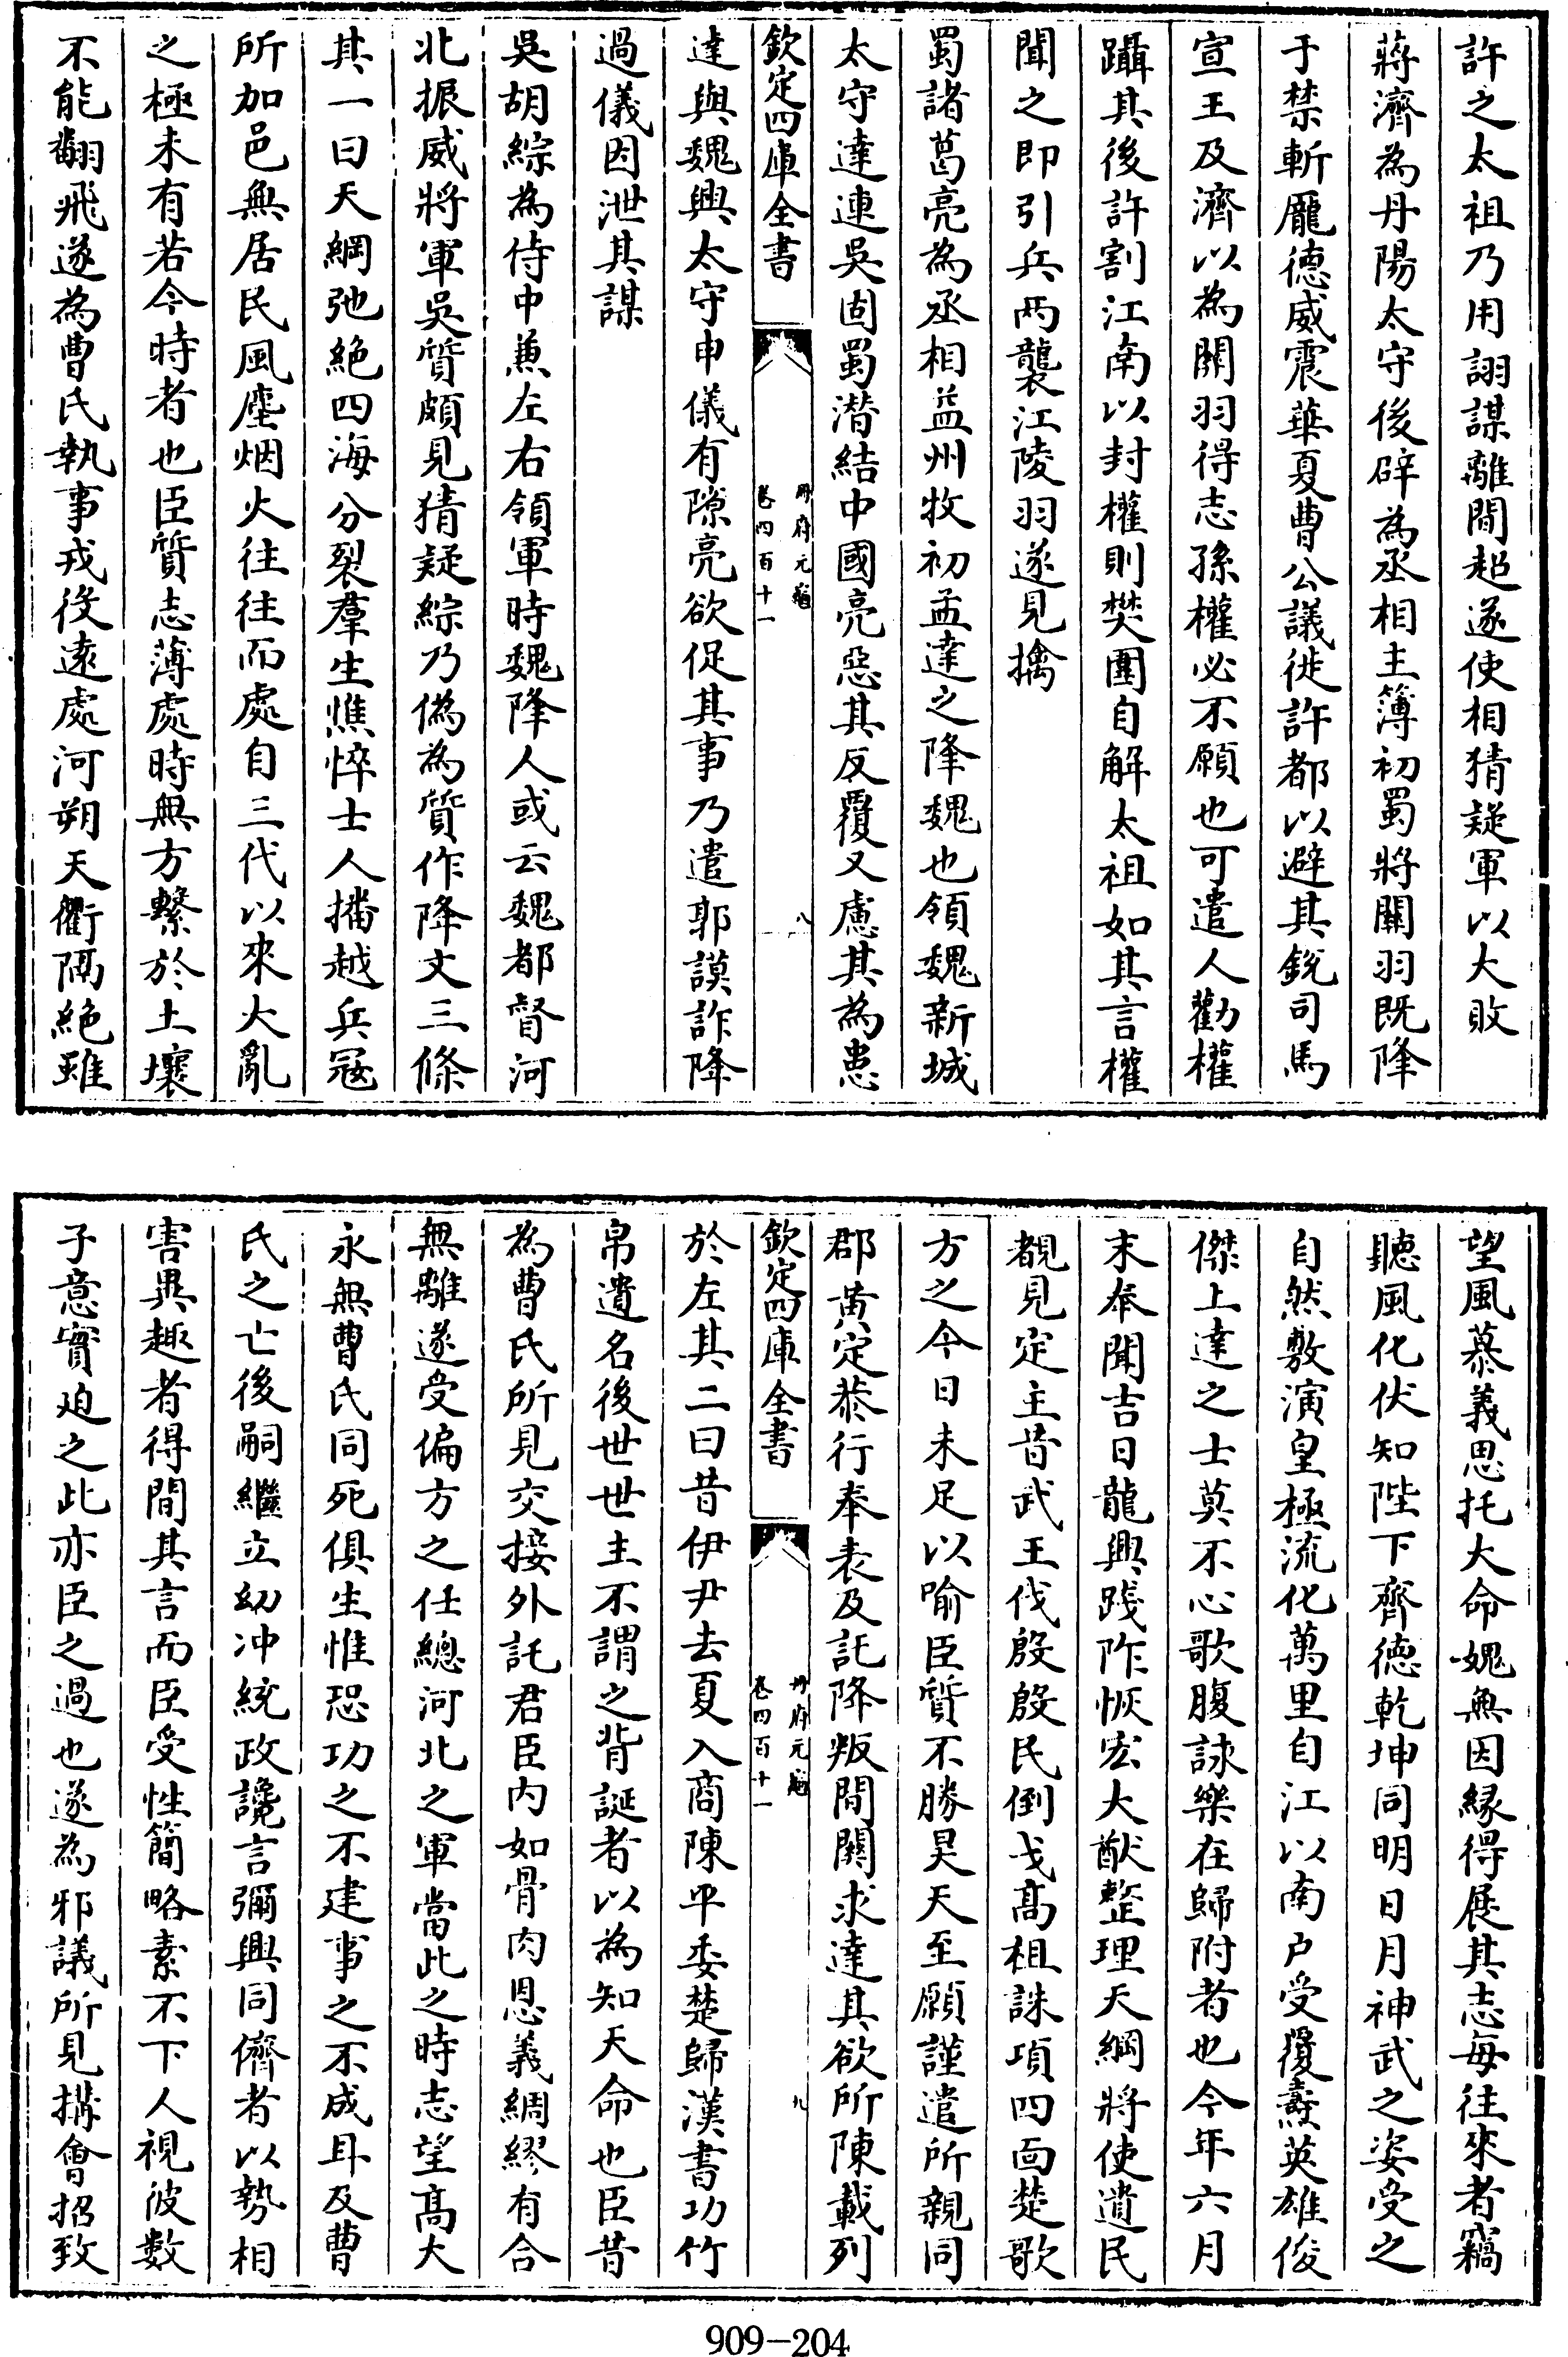 許之太祖乃用詡謀離間超遂使相猜疑軍以大敗
蔣濟為丹陽太守後辟為丞相主簿初蜀將關羽既降
于禁斬龐德威震華夏曹公議徙許都以避其銳司馬
宣王及濟以為關羽得志孫權必不願也可遣人勸權
躡其後許割江南以封權則樊圍自解太祖如其言權
聞之即引兵西襲江陵羽遂見擒
蜀諸葛亮為丞相益州牧初孟達之降魏也領魏新城
太守達連吳固蜀潛結中國亮惡其反覆又慮其為患
欽定四庫全書
冊府元龜
卷四百十一
八
達與魏興太守申儀有隙亮欲促其事乃遣郭謨詐降
過儀因泄其謀
吳胡綜為侍中兼左右領軍時魏降人或云魏都督河
北振威將軍吳質頗見猜疑綜乃偽為質作降文三條
其一曰天綱弛絕四海分裂羣生憔悴士人播越兵寇
所加邑無居民風塵烟火往往而處自三代以來大亂
之極未有若今時者也臣質志薄處時無方繫於土壤
不能翻飛遂為曹氏執事戎役遠處河朔天衢隔絕雖
望風慕義思托大命媿無因緣得展其志每往來者竊
聽風化伏知陛下齊德乾坤同明日月神武之姿受之
自然敷演皇極流化萬里自江以南户受覆燾英雄俊
傑上達之士莫不心歌腹詠樂在歸附者也今年六月
末奉聞吉日龍興踐阼恢宏大猷整理天綱將使遺民
覩見定主昔武王伐殷殷民倒戈高祖誅項四面楚歌
方之今日未足以喻臣質不勝昊天至願謹遣所親同
郡黃定恭行奉表及託降叛間關求達其欲所陳載列
欽定四庫全書
冊府元龜
卷四百十一
九
於左其二曰昔伊尹去夏入商陳平委楚歸漢書功竹
帛遺名後世世主不謂之背誕者以為知天命也臣昔
為曹氏所見交接外託君臣內如骨肉恩義綢繆有合
無離遂受偏方之任總河北之軍當此之時志望高大
永無曹氏同死俱生惟恐功之不建事之不成耳及曹
氏之亡後嗣繼立幼冲統政讒言彌興同儕者以勢相
害異趣者得間其言而臣受性簡略素不下人視彼數
子意實迫之此亦臣之過也遂為邪議所見搆會招致
909-204